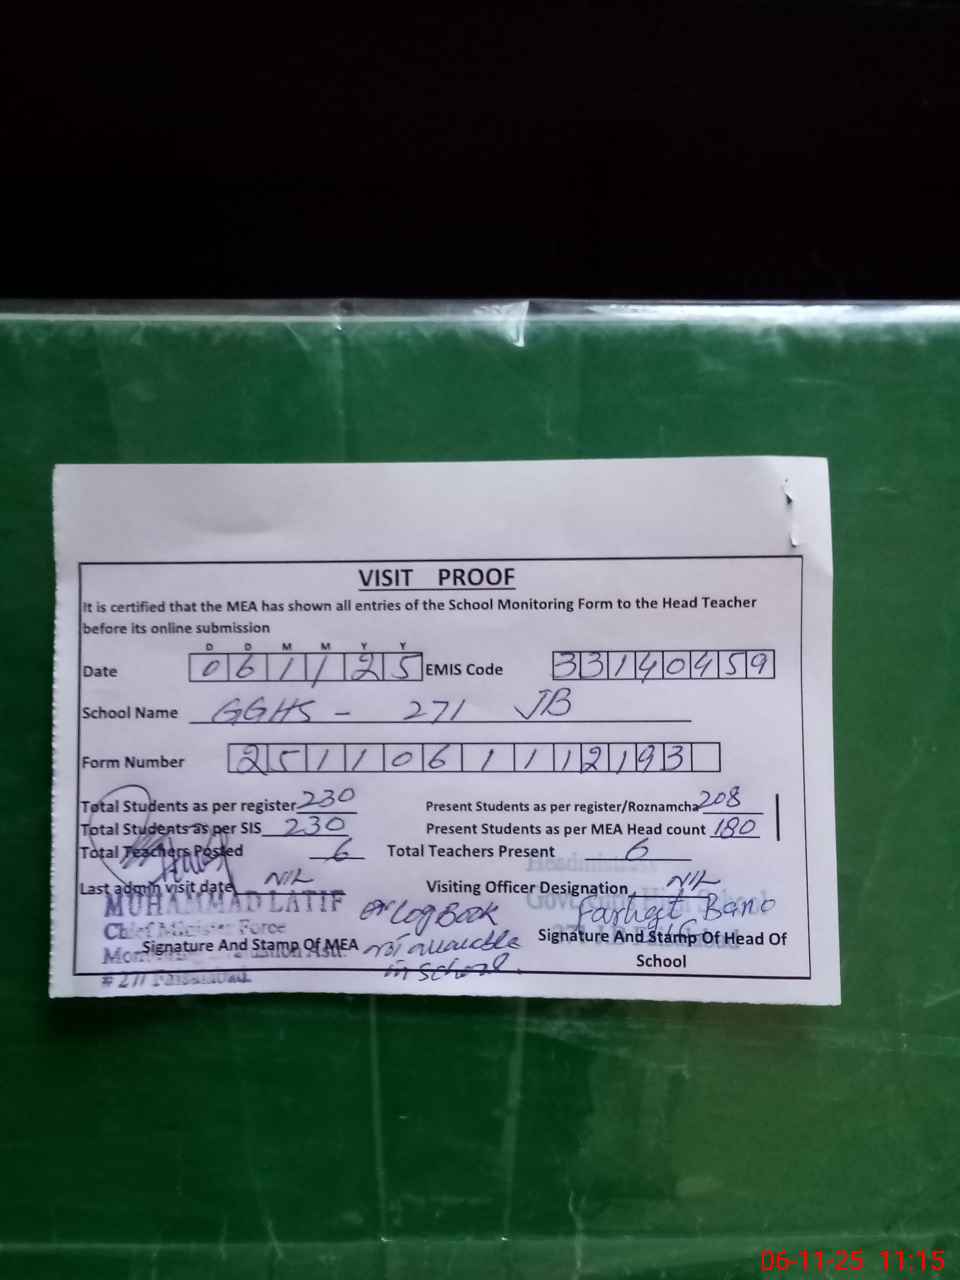 VISIT PROOF
It is certified that the MEA has shown all entries of the School Monitoring Form to the Head Teacher
before its online submission
D D M M Y Y
Date 0 6 1 1 2 5 EMIS Code 3 3 1 4 0 4 5 9
School Name GGHS - 271 JB
Form Number 2 5 1 1 0 6 1 1 1 2 1 9 3
Total Students as per register 230 Present Students as per register/Roznamcha 208
Total Students as per SIS 230 Present Students as per MEA Head count 180
Total Teachers Posted 6 Total Teachers Present 6
Headmistress
Last admin visit date NIL Visiting Officer Designation NIL
Government High School
MUHAMMAD LATIF Log Book Farhat Bano
Chief Minister Force
Signature And Stamp Of MEA not available Signature And Stamp Of Head Of
School
in school.
# 277 Faisalabad.
06-11-25 11:15